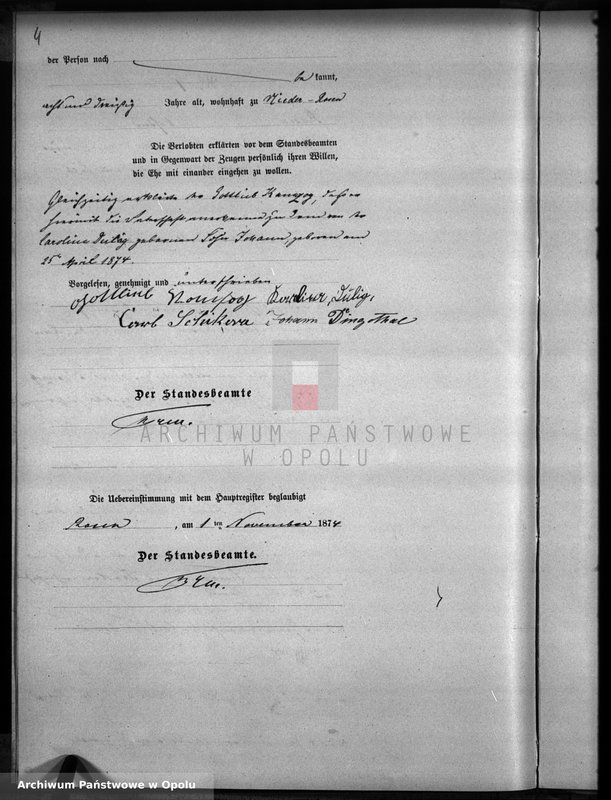 4
der Person nach
be kannt,
acht und dreißig Jahre alt, wohnhaft zu Nieder-Rosen
Die Verlobten erklärten vor dem Standesbeamten
und in Gegenwart der Zeugen persönlich ihren Willen,
die Ehe mit einander eingehen zu wollen.
Gleichzeitig erklärte der Gottlieb, daß er
hiermit die Vaterschaft zu dem von der
Carolina Dulig geborenen Sohn Johann, geboren am
25t April 1874.
Vorgelesen, genehmigt und unterschrieben
Gottlieb Dulig,
Carl Johann
Der Standesbeamte
ARCHIWUM PAŃSTWOWE
W OPOLU
Die Uebereinstimmung mit dem Hauptregister beglaubigt
Rosen, am 1 ten November 1874
Der Standesbeamte.
Archiwum Państwowe w Opolu